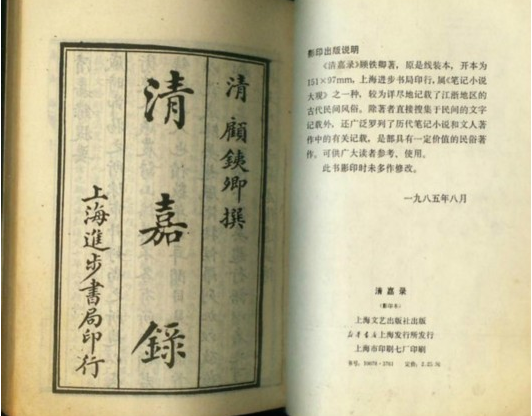 清 顧鐵卿撰
清嘉錄
上海進步書局印行
影印出版说明
《清嘉录》顾铁卿著，原是线装本，开本为
151×97mm，上海进步书局印行，属《笔记小说
大观》之一种，较为详尽地记载了江浙地区的
古代民间风俗，除著者直接搜集于民间的文字
记载外，还广泛罗列了历代笔记小说和文人著
作中的有关记载，是部具有一定价值的民俗著
作，可供广大读者参考、使用。
此书影印时未多作修改。
一九八五年八月
清嘉录
(影印本)
上海文艺出版社出版
新华书店上海发行所发行
上海市印刷七厂印刷
书号：10078·3751 定价：2.35元